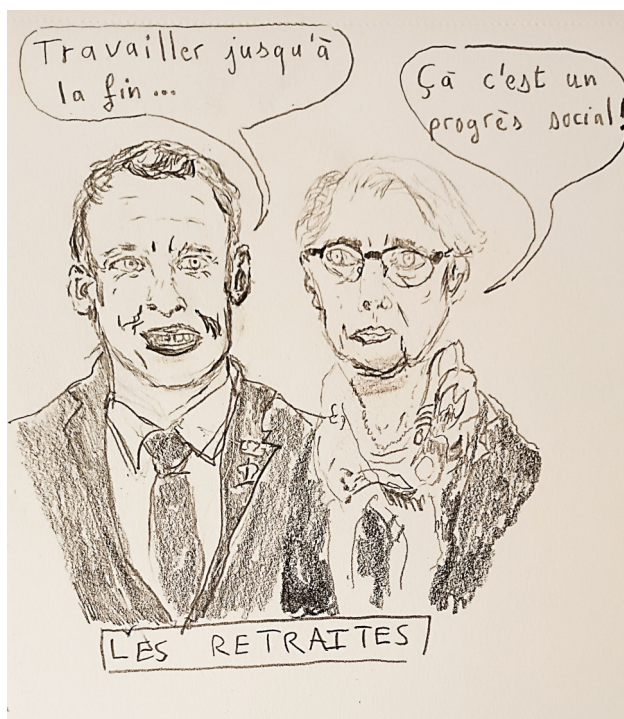 Travailler jusqu'à
la fin...
Çà c'est un
progrès social!
LES RETRAITES